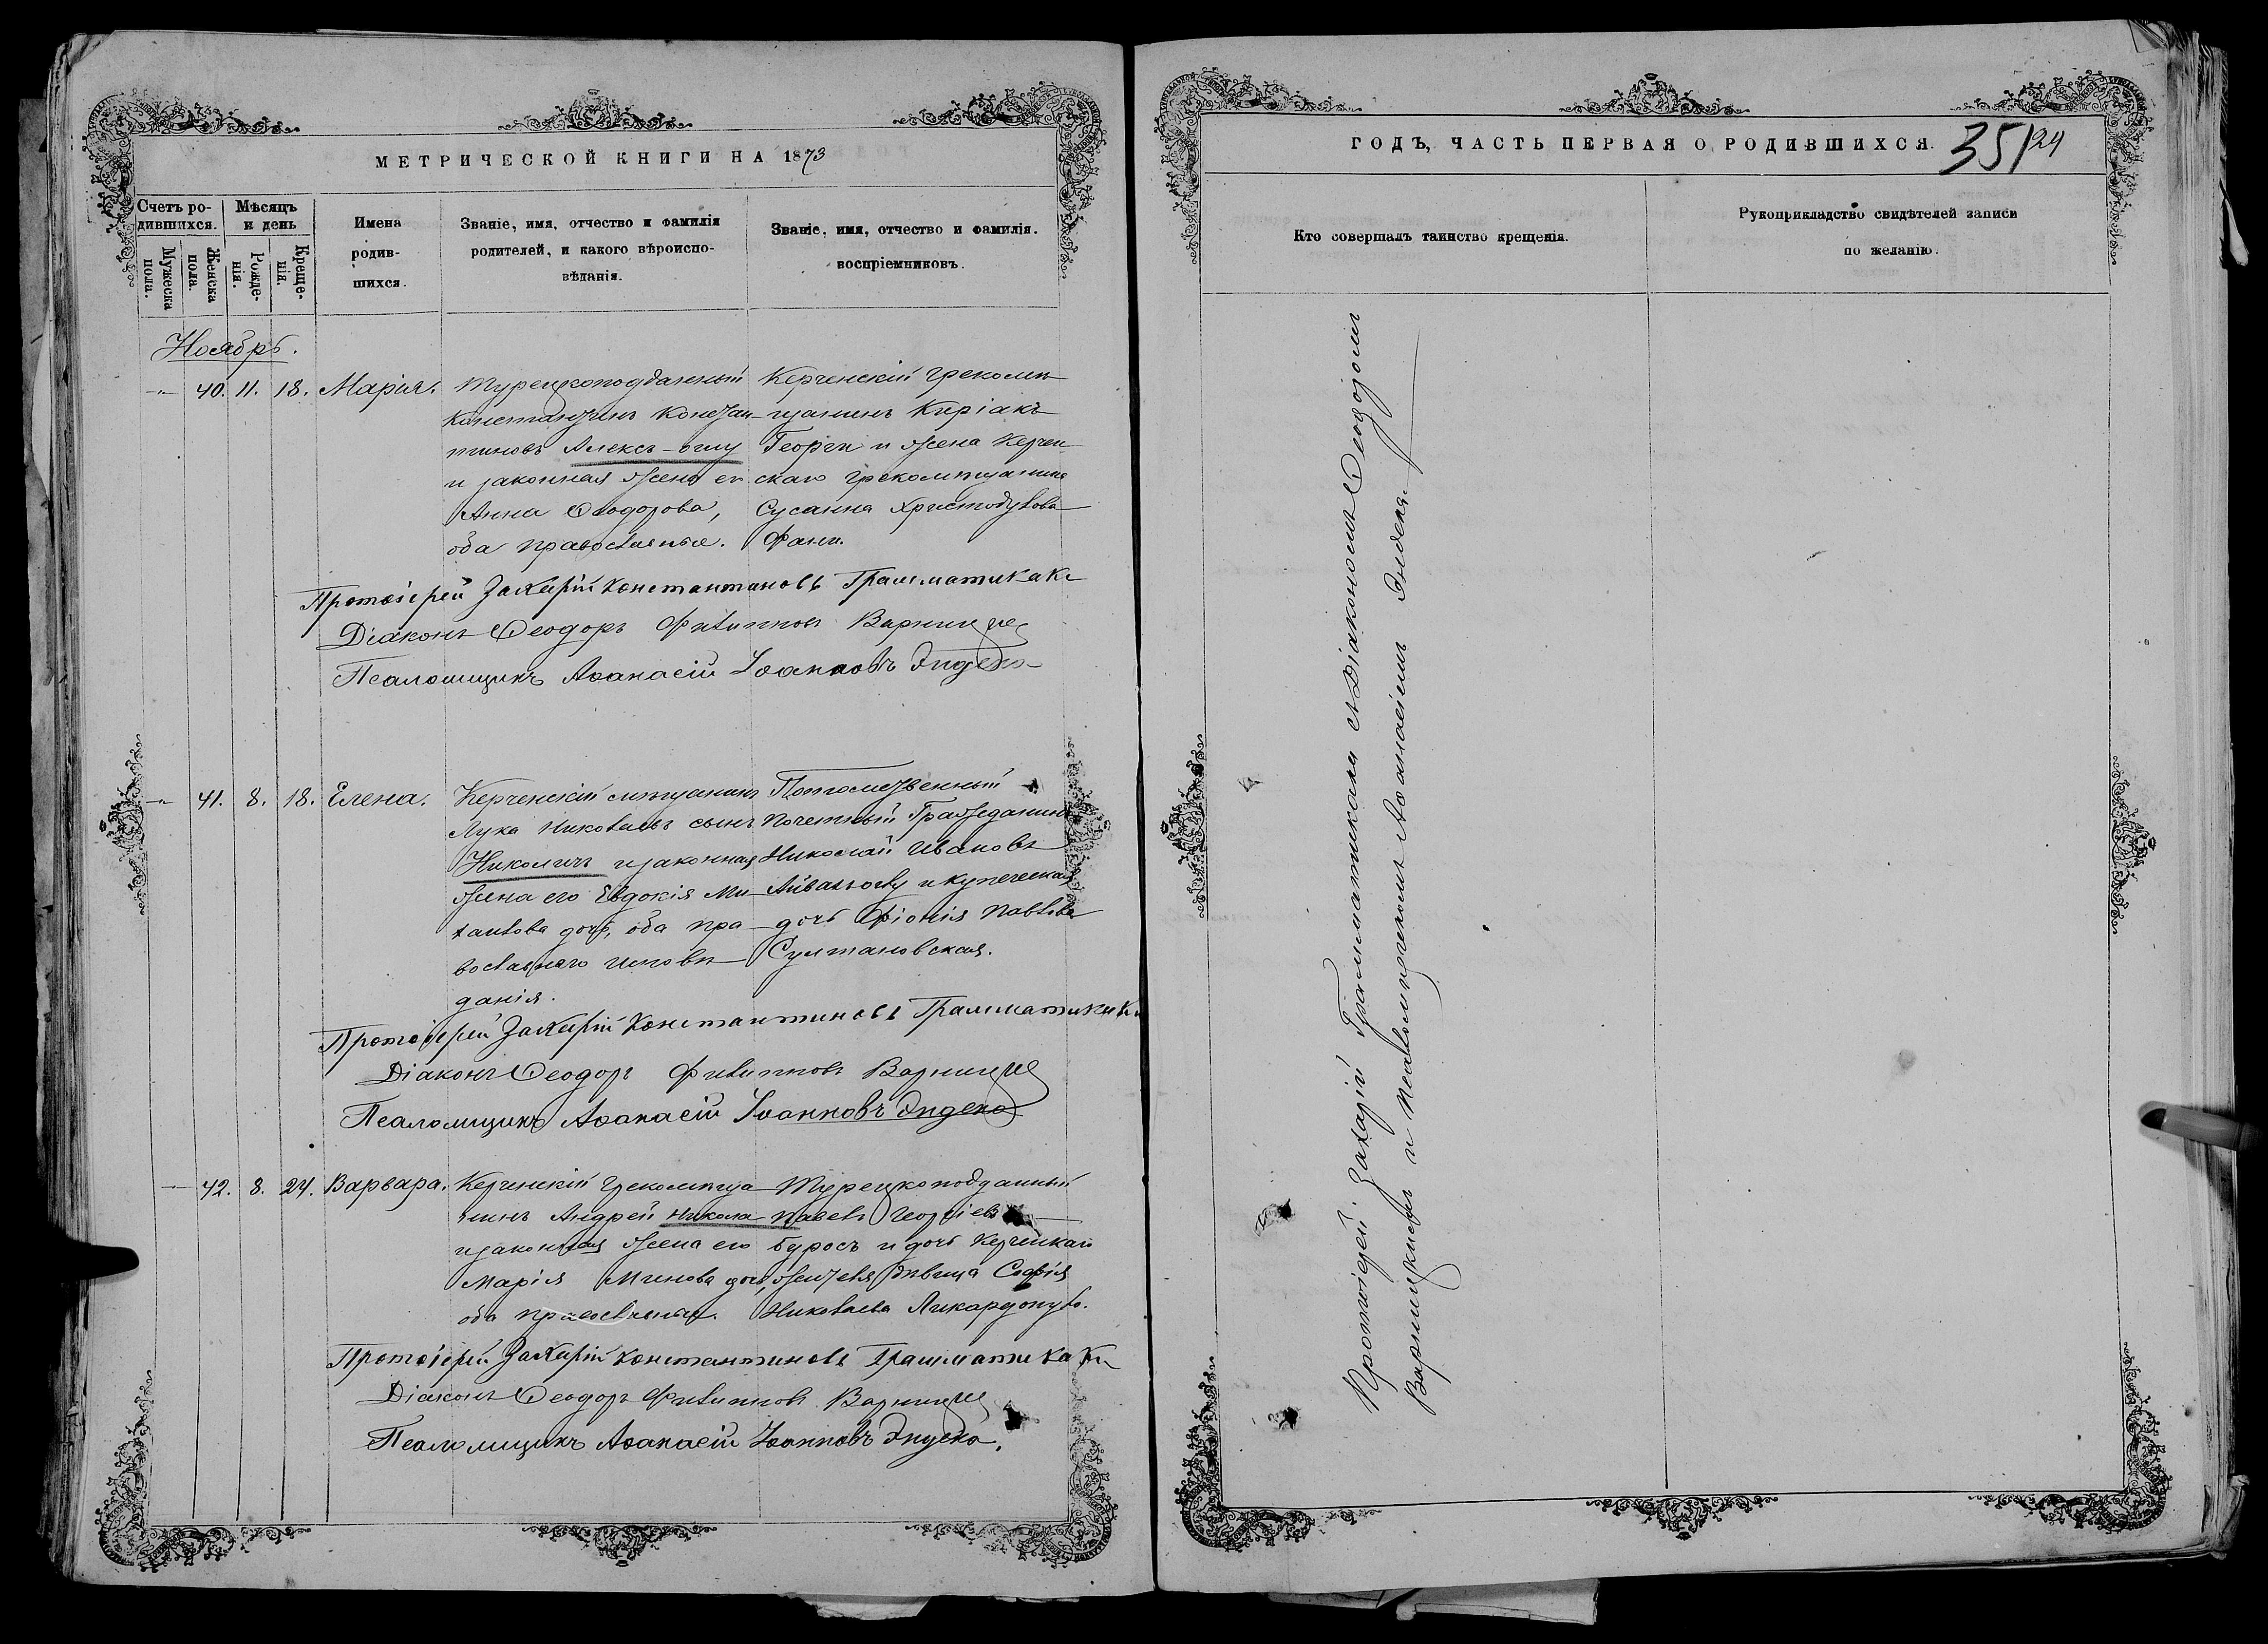 МЕТРИЧЕСКОЙ КНИГИ НА 1873
Счетъ ро-
дившихся.
Мѣсяцъ
и день
Мужеска
пола.
Женска
пола.
Рожде-
нія.
Креще-
нія.
Имена
родив-
шихся.
Званіе, имя, отчество и фамилія
родителей, и какого вѣроиспо-
вѣданія.
Званіе, имя, отчество и фамилія.
воспріемниковъ.
Ноябрь.
-"- 40. 11. 18. Марія.
Турецкоподданный
Константинъ Констан-
тиновъ Алексъ-оглу
и законная жена его
Анна Ѳеодорова,
оба православные.
Керченскій грекомѣ-
щанинъ Киріакъ
Георги и жена Керчен-
скаго грекомѣщанина
Сусанна Христодулова
Протоіерей Захарій Константиновъ Грамматикаки
Діаконъ Ѳеодоръ Филипповъ
Псаломщикъ Аѳанасій Іоанновъ
-"- 41. 8. 18. Елена.
Керченскій мѣщанинъ
Лука Николаевъ сынъ
Николичъ и законная
жена его Евдокія Ми-
хайлова дочь, оба пра-
вославнаго исповѣ-
данія.
Потомственный
Почетный Гражданинъ
Николай Ивановъ
и купеческая
дочь Фіонія Павлова
Султановская.
Протоіерей Захарій Константиновъ Грамматикаки
Діаконъ Ѳеодоръ Филипповъ
Псаломщикъ Аѳанасій Іоанновъ
— 42. 8. 24. Варвара.
Керченскій грекомѣща-
нинъ Андрей Никола
и законная жена его
Марія Минова дочь,
оба православные.
Турецкоподданный
Павелъ Георгіевъ
Буросъ и дочь Керченскаго
жителя дѣвица Софія
Николаева Ликардопуло.
Протоіерей Захарій Константиновъ Грамматикаки
Діаконъ Ѳеодоръ Филипповъ
Псаломщикъ Аѳанасій Іоанновъ
ГОДЪ, ЧАСТЬ ПЕРВАЯ О РОДИВШИХСЯ.
351 24
Кто совершалъ таинство крещенія.
Рукоприкладство свидѣтелей записи
по желанію.
Протоіерей Захарій Грамматикаки съ Діакономъ Ѳеодоромъ
и Псаломщикомъ Аѳанасіемъ